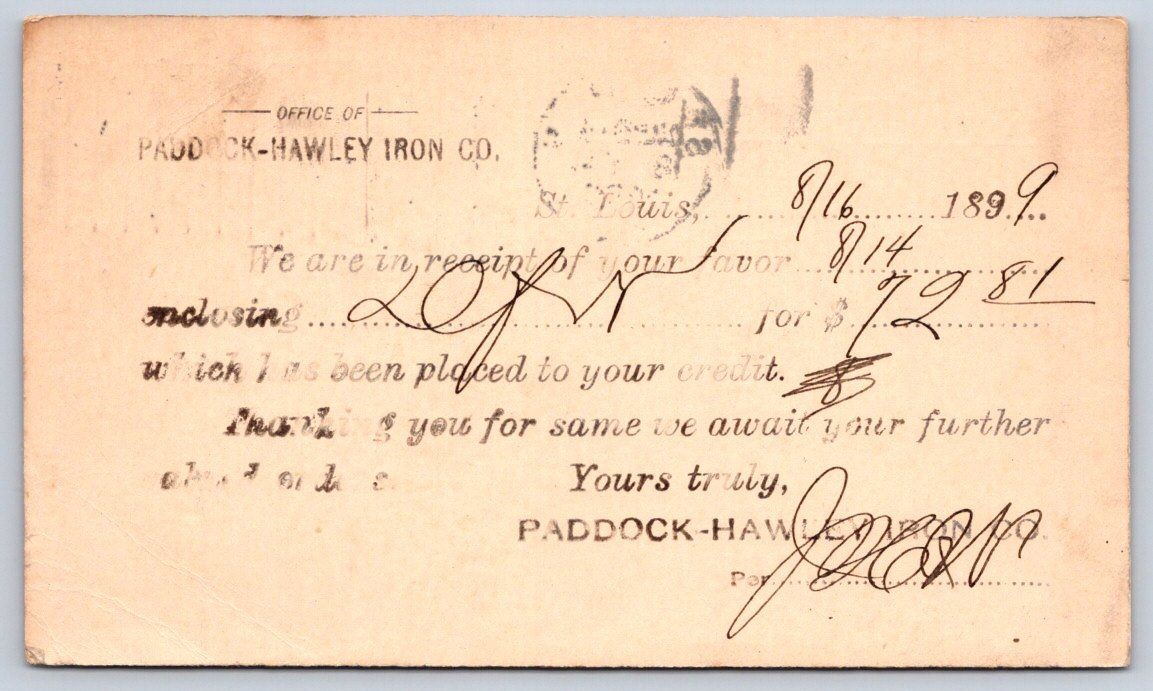 OFFICE OF
PADDOCK-HAWLEY IRON CO.
St. Louis, 8/16 1899
We are in receipt of your favor 8/14
enclosing for $ 72 81
which has been placed to your credit.
Thanking you for same we await your further
Yours truly,
PADDOCK-HAWLEY IRON CO.
Per